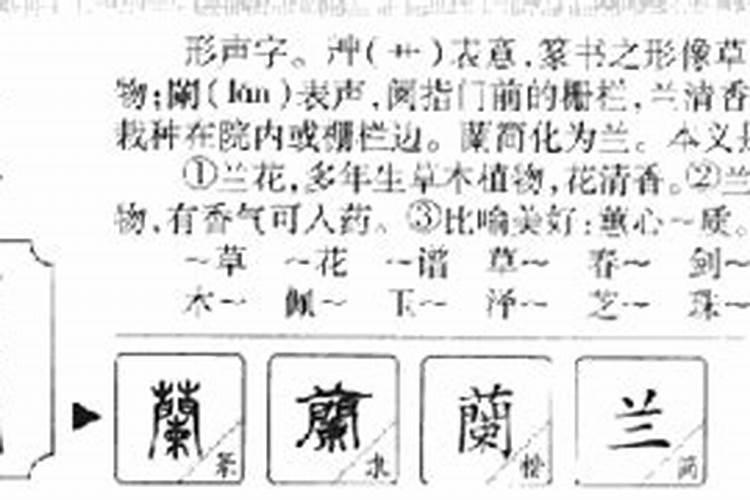 形声字。艸(艹)表意,篆书之形像草
物;阑(lán)表声,阑指门前的栅栏,兰清香
栽种在院内或栅栏边。蘭简化为兰。本义是
①兰花,多年生草本植物,花清香。②兰
物,有香气可入药。③比喻美好:蕙心~质。
~草 ~花 ~谱 草~ 春~ 剑~
木~ 佩~ 玉~ 泽~ 芝~ 珠~
蘭 篆 蘭 隶 蘭 楷 兰 简